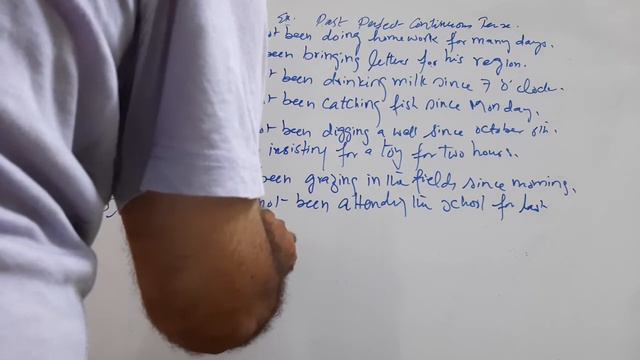 Ex: Past Perfect Continuous Tense.
been doing homework for many days.
been bringing letters for his region.
been drinking milk since 7 o'clock.
been catching fish since Monday.
been digging a well since october 6th.
insisting for a toy for two hours.
been grazing in the fields since morning.
not been attending the school for last